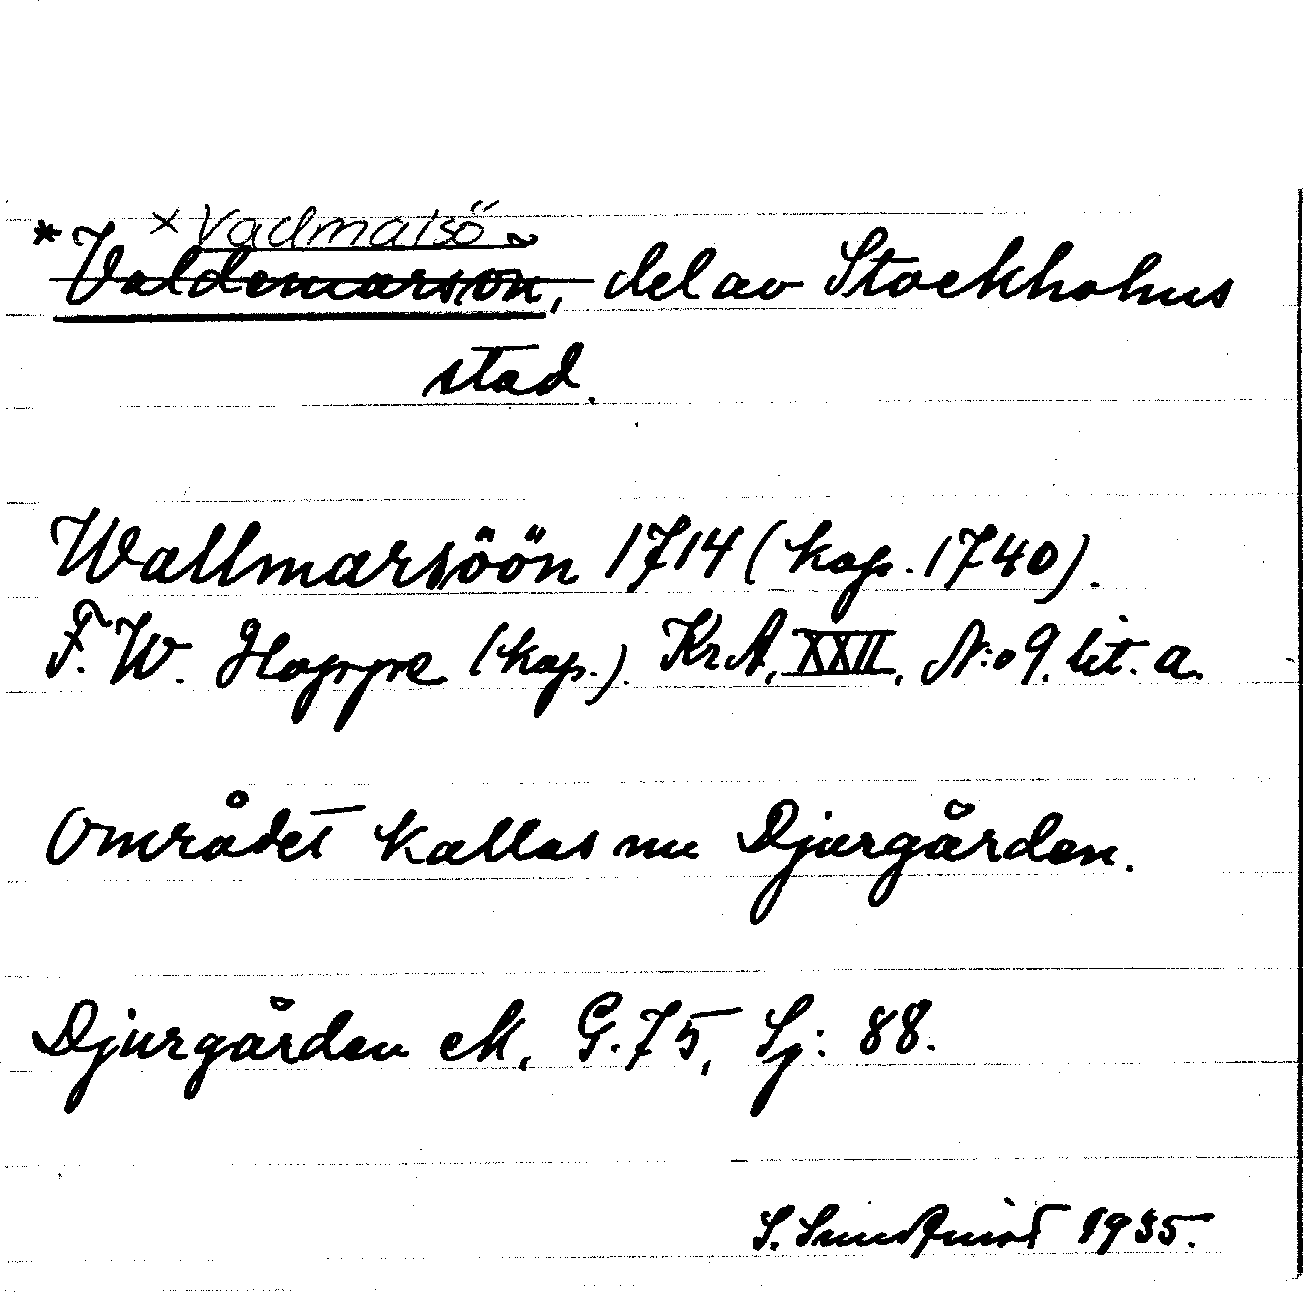 × Vadmalsö
* Valdemarsön, del av Stockholms
stad.
Wallmarsöön 1714 (kop. 1740).
F. W. Hoppe (kop.). KrA, XXII, N:o 9. lit. a.
Området kallas nu Djurgården.
Djurgården ek, G. 75, Sj: 88.
S. Sundquist 1935.